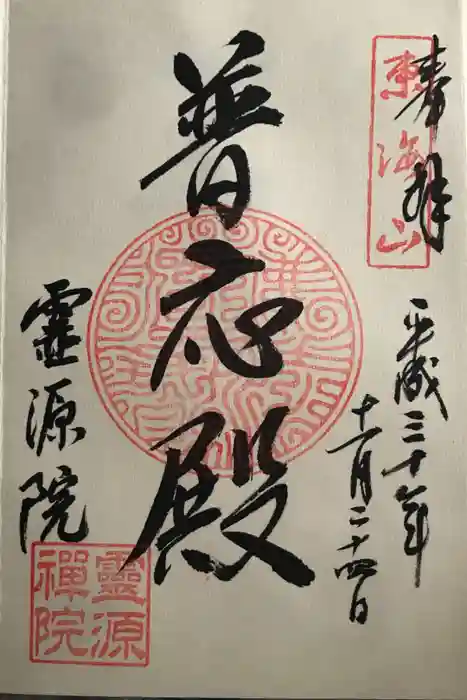 奉拝
東海山
平成三十年
十一月二十四日
普応殿
霊源院
靈源
禪院